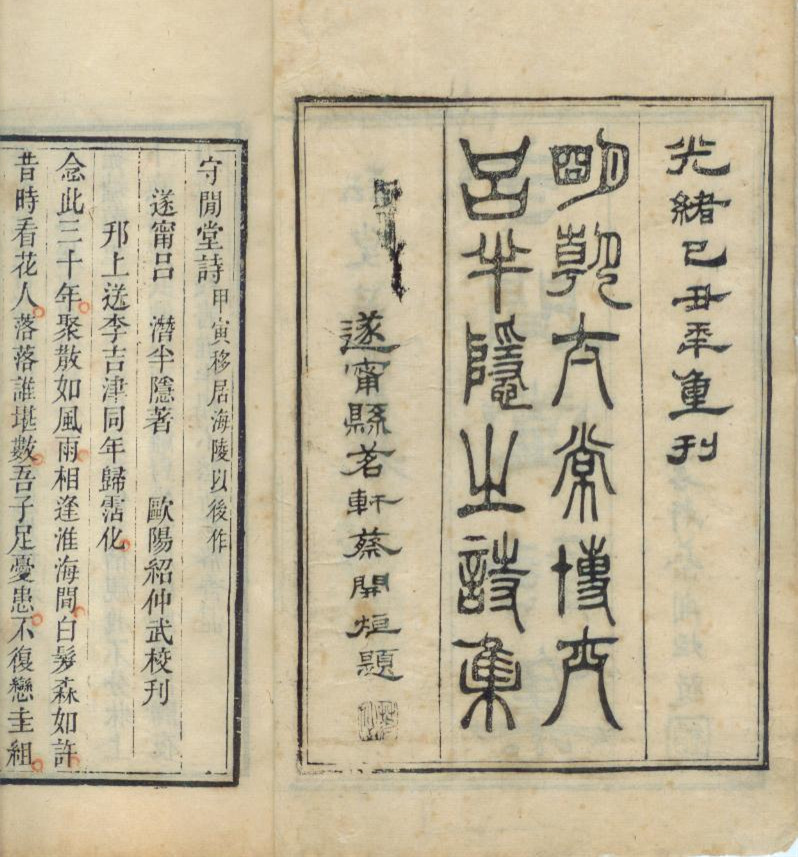 光緒己丑年重刊
明朝太常博士
呂半隱之詩集
遂甯縣茗軒蔡開烜題
守閒堂詩 甲寅移居海陵以後作
遂甯呂 潛半隱著 歐陽紹仲武校刊
邗上送李吉津同年歸霑化
念此三十年聚散如風雨相逢淮海間白髮森如許
昔時看花人落落誰堪數吾子足憂患不復戀圭組